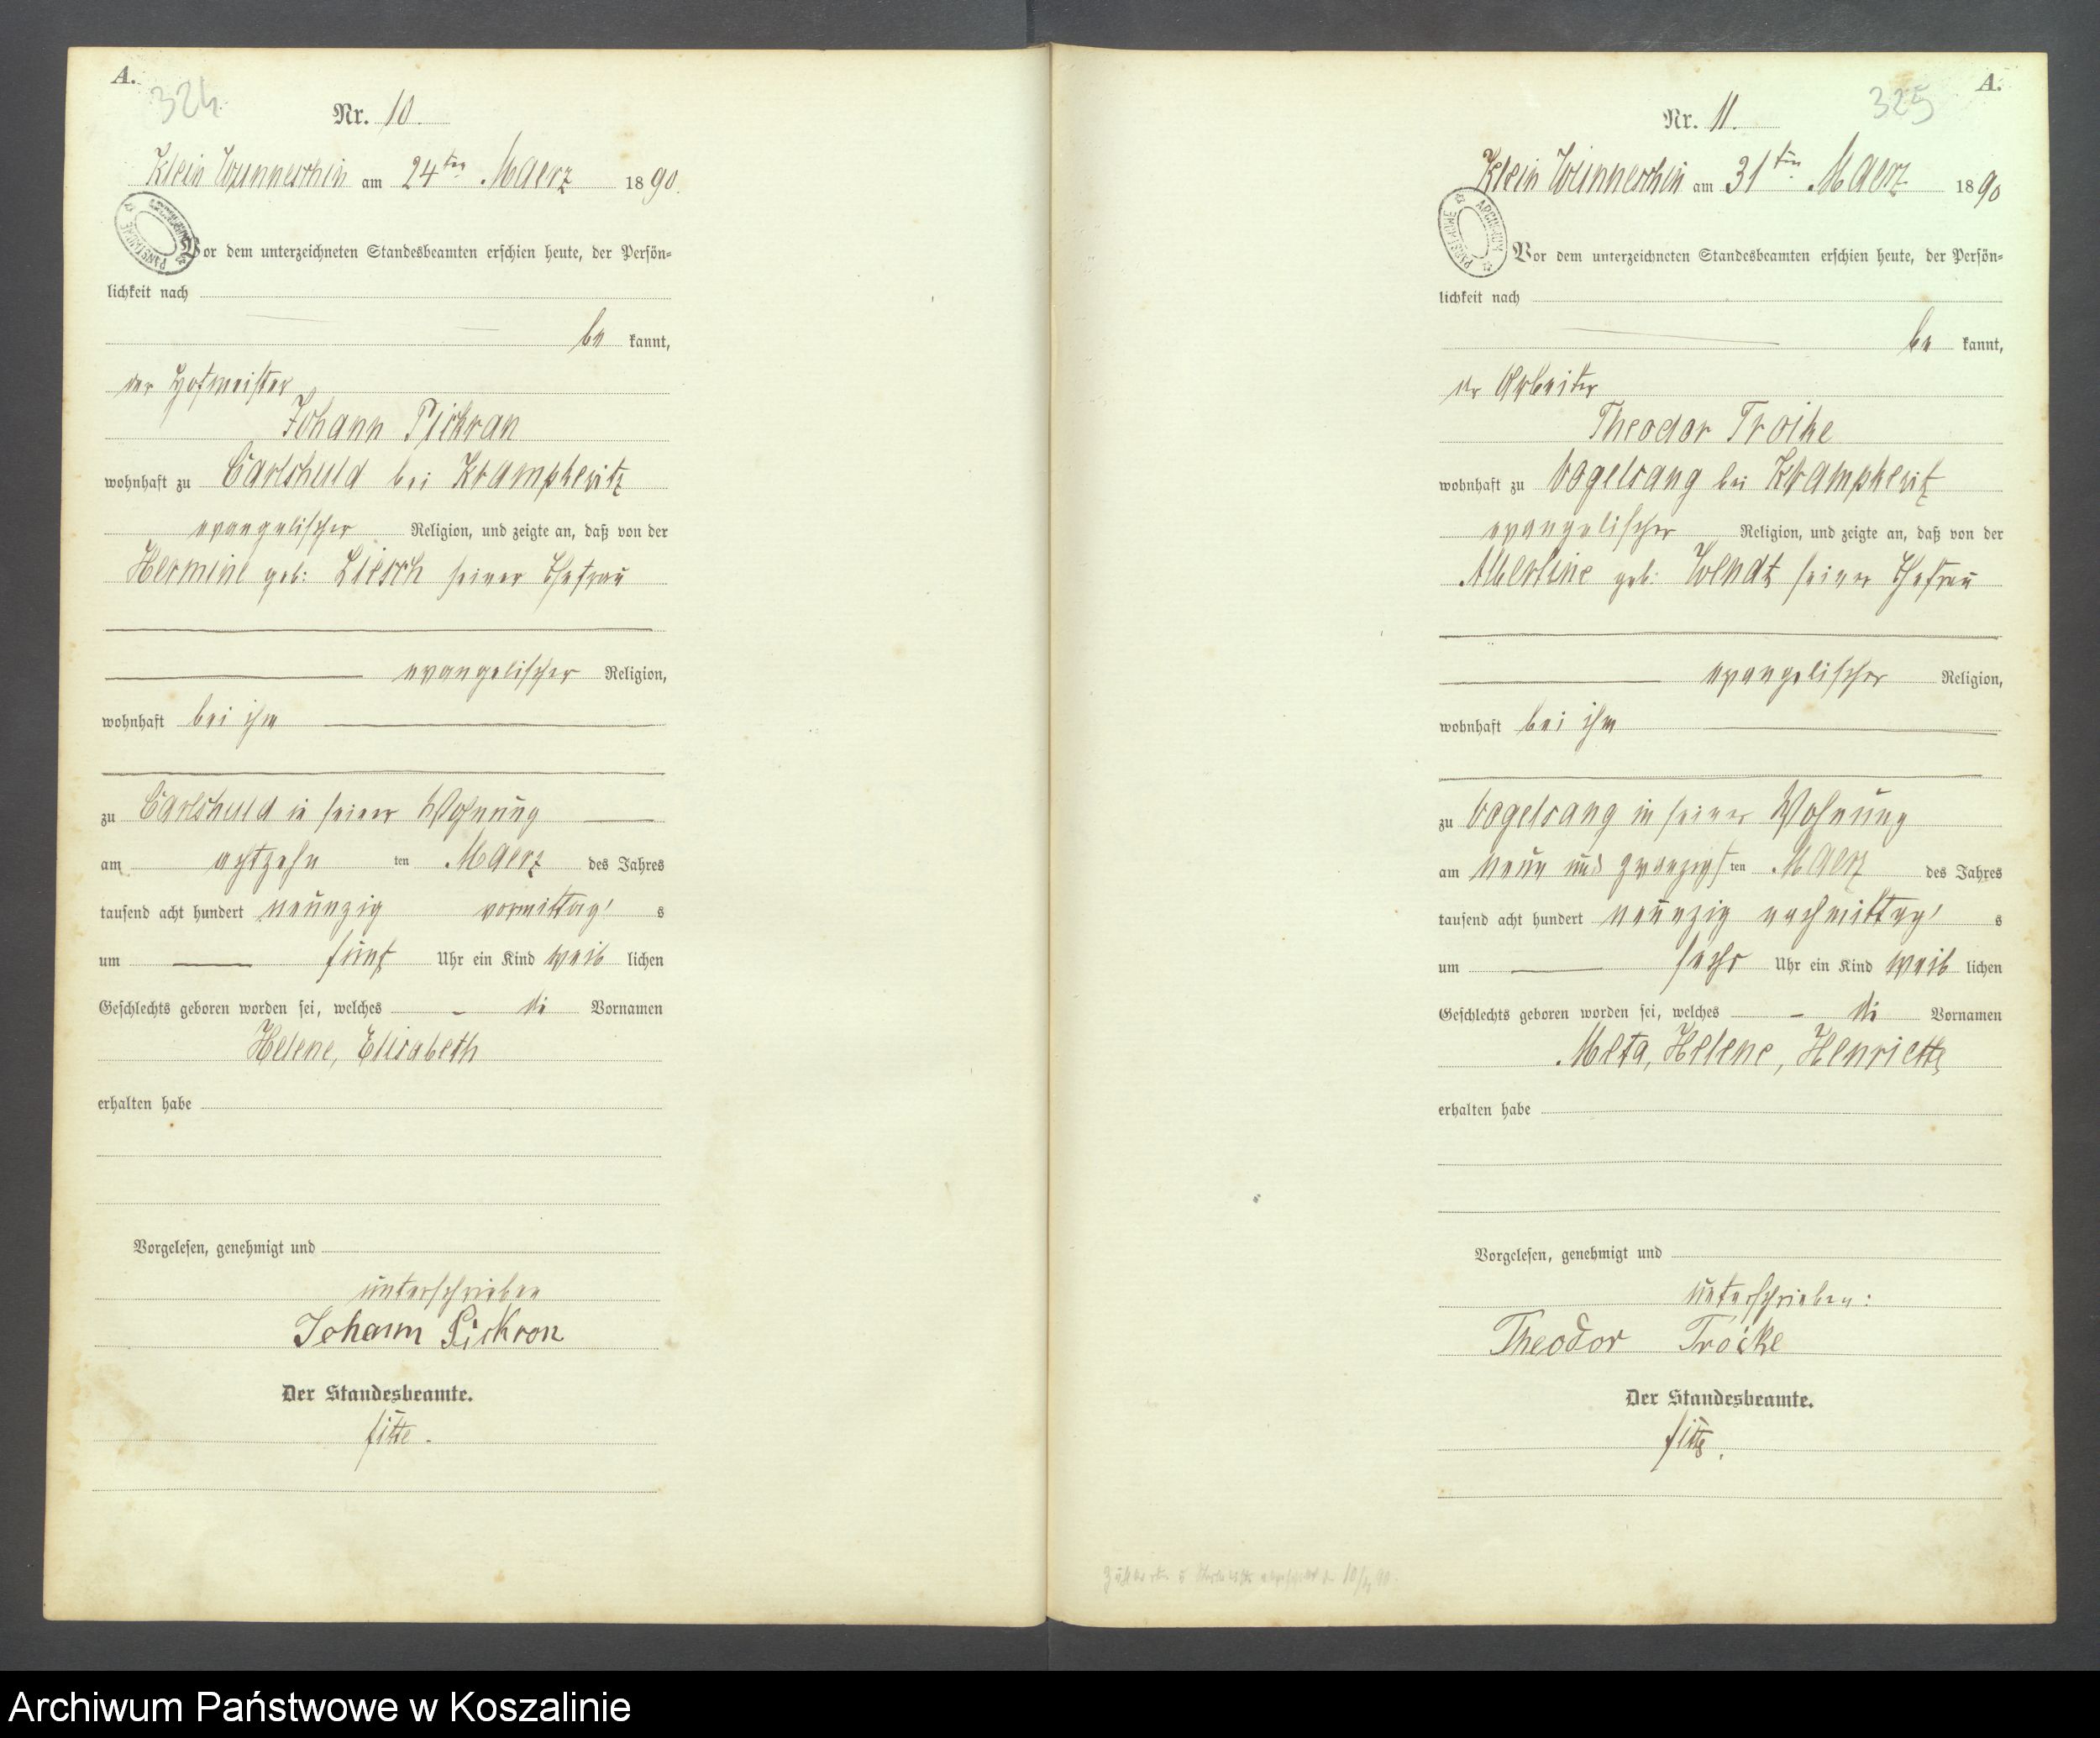 A.
324
Nr. 10.
Klein Wunneschin am 24ten Maerz 1890.
Vor dem unterzeichneten Standesbeamten erschien heute, der Persön-
lichkeit nach
be kannt,
der Hofmeister
Johann Pickran
wohnhaft zu Carlshuld bei Krampkewitz
evangelischer Religion, und zeigte an, daß von der
Hermine geb: Liesch seiner Ehefrau
evangelischer Religion,
wohnhaft bei ihm
zu Carlshuld in seiner Wohnung
am achtzehn ten Maerz des Jahres
tausend acht hundert neunzig vormittag's
um fünf Uhr ein Kind weib lichen
Geschlechts geboren worden sei, welches - di Vornamen
Helene, Elisabeth
erhalten habe
Vorgelesen, genehmigt und
unterschrieben
Johann Pickron
Der Standesbeamte.
A.
325
Nr. 11.
Klein Wunneschin am 31ten Maerz 1890
Vor dem unterzeichneten Standesbeamten erschien heute, der Persön-
lichkeit nach
be kannt,
der Arbeiter
Theodor Troike
wohnhaft zu Vogelsang bei Krampkewitz
evangelischer Religion, und zeigte an, daß von der
Albertine geb: Wendt seiner Ehefrau
evangelischer Religion,
wohnhaft bei ihm
zu Vogelsang in seiner Wohnung
am neun und zwanzigsten Maerz des Jahres
tausend acht hundert neunzig nachmittag's
um sechs Uhr ein Kind weib lichen
Geschlechts geboren worden sei, welches - di Vornamen
Meta, Helene, Henriette
erhalten habe
Vorgelesen, genehmigt und
unterschrieben:
Theodor Troike
Der Standesbeamte.
Archiwum Państwowe w Koszalinie